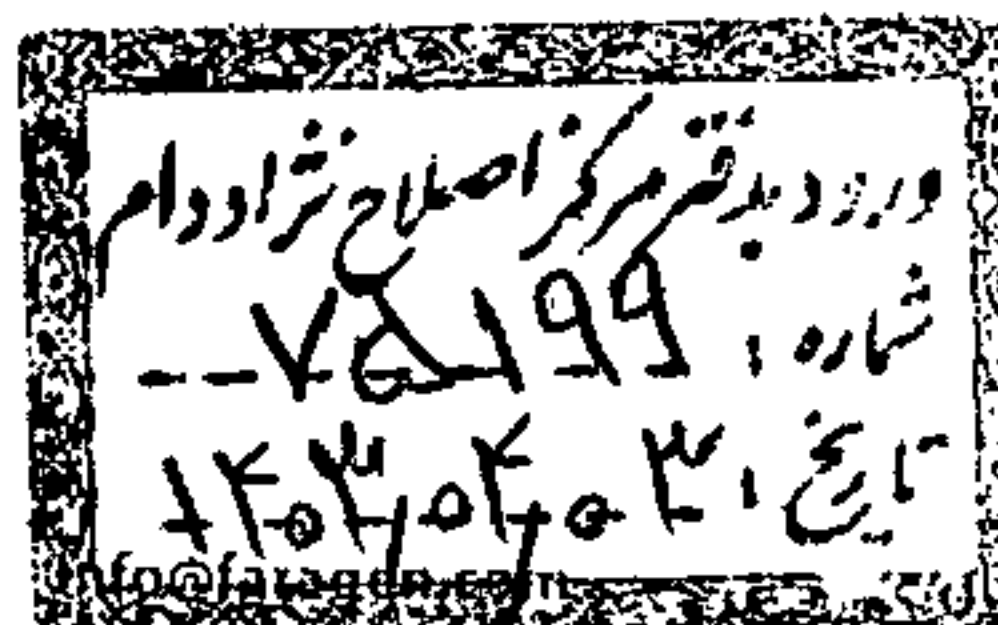 ورود بدفتر مرکز اصلاح نژاد دام
شماره : ۷۵۱۹۹
تاریخ : ۱۴۰۳/۰۴/۰۳